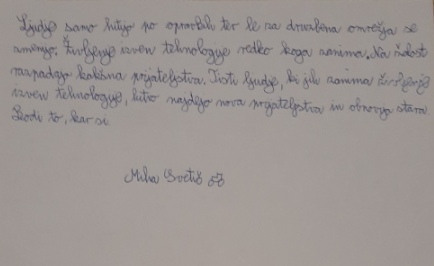 Ljudje samo hitijo po opravkih ter le za družbena omrežja se
zmenijo. Življenje izven tehnologije redko koga zanima. Na žalost
razpadajo kakšna prijateljstva. Tisti ljudje, ki jih zanima življenje
izven tehnologije, hitro najdejo nova prijateljstva in obnovijo stara.
Bodi to, kar si
Miha Svetič